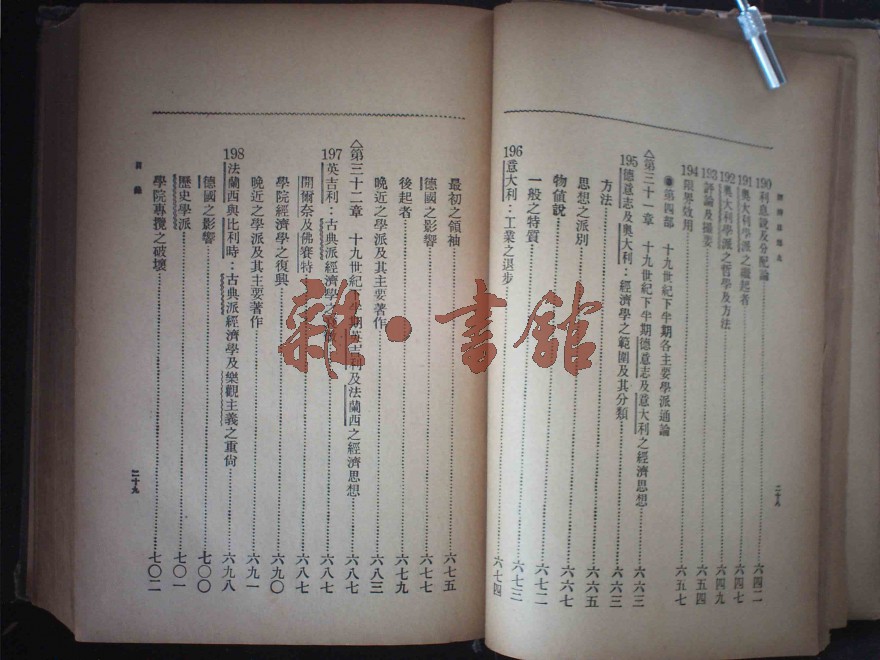 經濟思想史
190利息說及分配論……六四二
191奧大利學派之繼起者……六四七
192奧大利學派之哲學及方法……六四九
193評論及撮要……六五四
194限界效用……六五七
第四部 十九世紀下半期各主要學派通論
△第三十一章 十九世紀下半期德意志及意大利之經濟思想……六六三
195德意志及奧大利:經濟學之範圍及其分類……六六三
方法……六六五
思想之派別……六六七
物值說……六七二
一般之特質……六七三
196意大利:工業之退步……六七四
二十八
最初之領袖……六七五
德國之影響……六七七
後起者……六七九
晚近之學派及其主要著作……六八三
△第三十二章 十九世紀下半期英吉利及法蘭西之經濟思想……六八七
197英吉利:古典派經濟學之……六八七
開爾奈及佛賽特……六八七
學院經濟學之復興……六九〇
晚近之學派及其主要著作……六九一
198法蘭西與比利時:古典派經濟學及樂觀主義之重尙……六九八
德國之影響……七〇〇
歷史學派……七〇一
學院專攬之破壞……七〇二
目錄
二十九
雜·書館